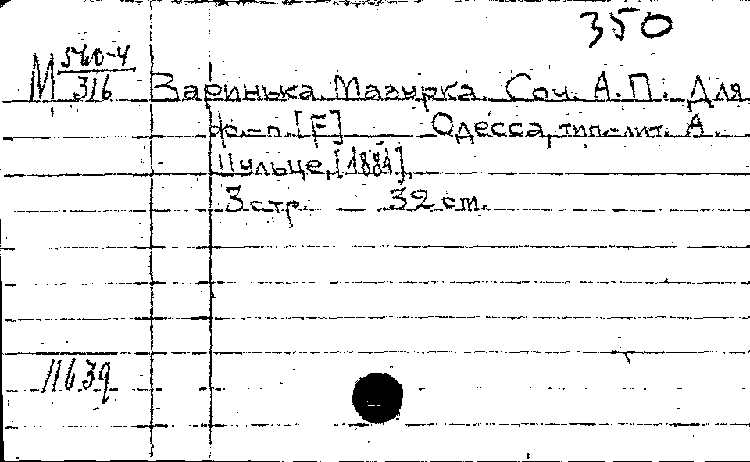 350
М 540-4/316
Заринька. Мазурка. Соч. А. П. Для
ф.-п. [F] Одесса, тип.-лит. А.
Шульце, [1881].
3 стр. 32 см.
11639